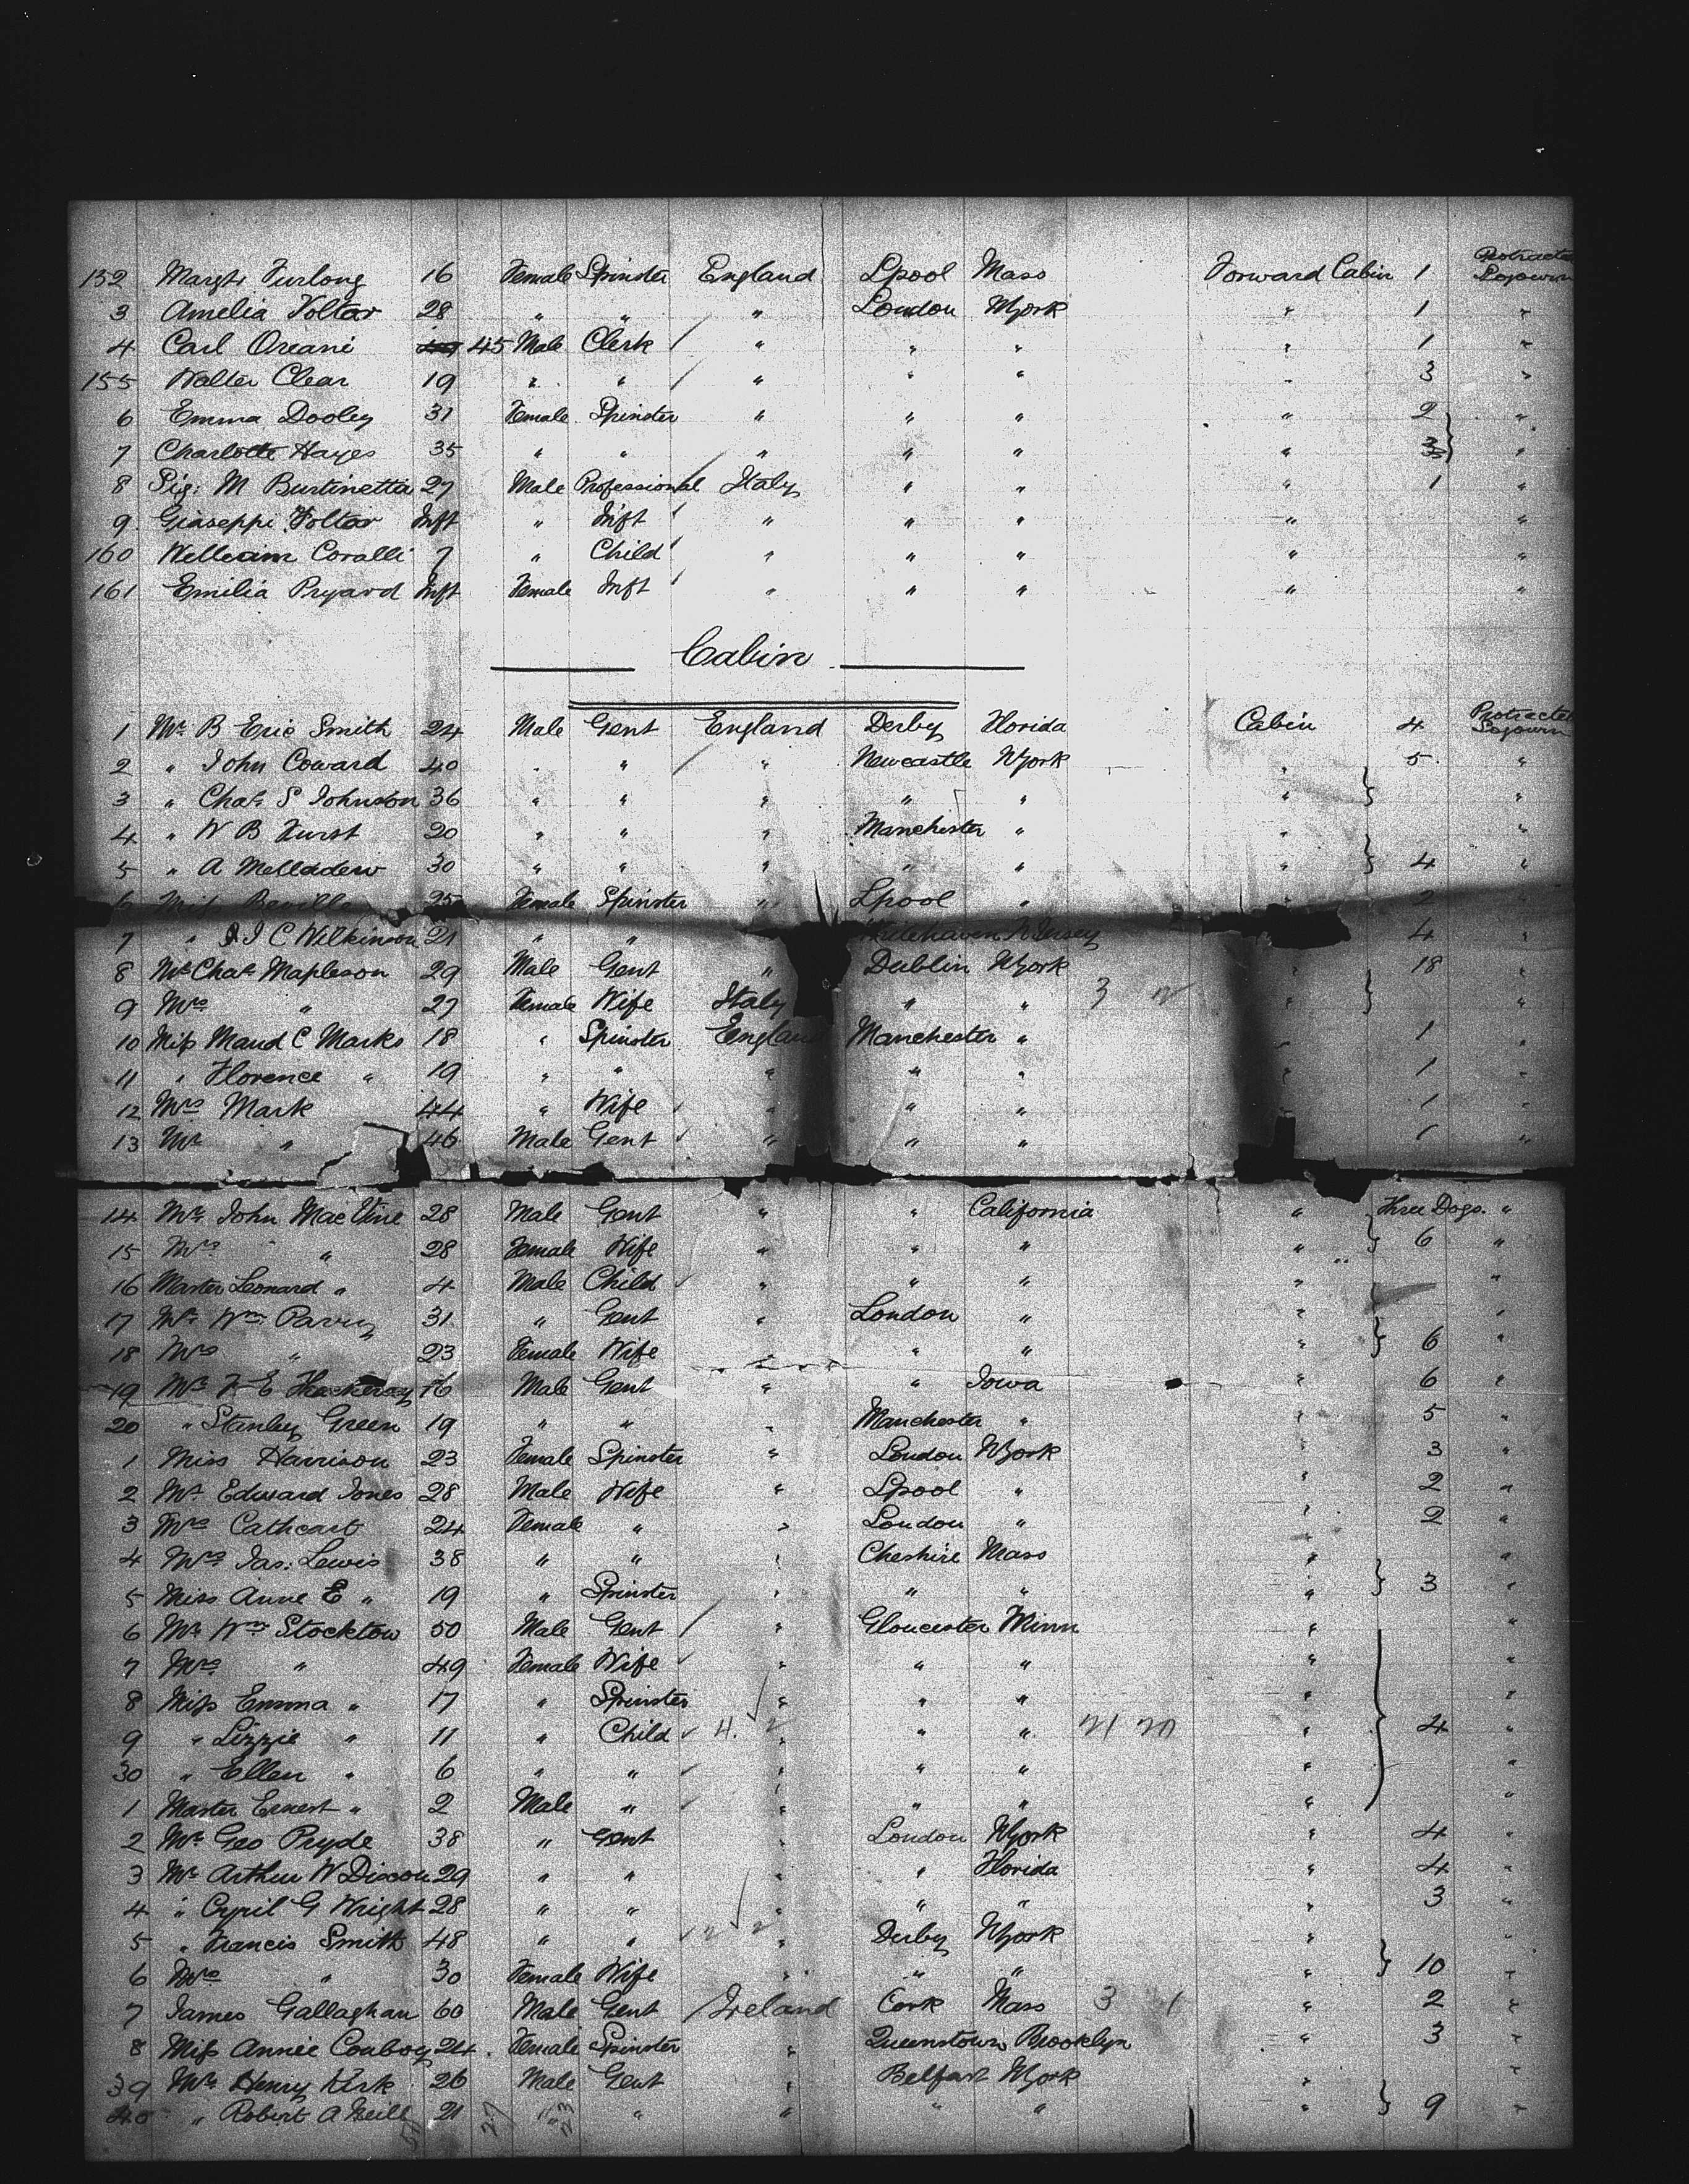 152 Margt Furlong 16 Female Spinster England Lpool Mass Forward Cabin 1 Protracted Sojourn
3 Amelia Voltar 28 " " " London NYork " 1 "
4 Carl Oreani 45 Male Clerk " " " " 1 "
155 Walter Clear 19 " " " " " " 3 "
6 Emma Dooley 31 Female Spinster " " " " 2 "
7 Charlotte Hayes 35 " " " " " " 3 "
8 Sig: M Burtinetta 27 Male Professional Italy " " " 1 "
9 Giaseppi Voltar Inft " Inft " " " " "
160 William Coralli 7 " Child " " " " "
161 Emilia Pryard Inft Female Inft " " " " "
Cabin
1 Mr B Eric Smith 24 Male Gent England Derby Florida Cabin 4 Protracted Sojourn
2 " John Coward 40 " " " Newcastle NYork " 5 "
3 " Chas S Johnston 36 " " " " " " "
4 " W B Hurst 20 " " " Manchester " " "
5 " A Melladew 30 " " " " " " 4 "
6 Miss 25 Female Spinster " Lpool " " 2 "
7 " J C Wilkinson 21 " " " NJersey " 4 "
8 Mr Chas Mapleson 29 Male Gent " Dublin NYork " 18 "
9 Mrs " 27 Female Wife Italy " " 3 " "
10 Miss Maud C Marks 18 " Spinster England Manchester " " 1 "
11 " Florence " 19 " " " " " " 1 "
12 Mrs Mark 44 " Wife " " " " 1 "
13 Mr " 46 Male Gent " " " " 1 "
14 Mr John MacVine 28 Male Gent " " California " Three Dogs. "
15 Mrs " 28 Female Wife " " " " 6 "
16 Master Leonard " 4 Male Child " " " " "
17 Mr Wm Parry 31 " Gent " London " " "
18 Mrs " 23 Female Wife " " " " 6 "
19 Mr Thackeray 16 Male Gent " " Iowa " 6 "
20 " Stanley Green 19 " " " Manchester " " 5 "
1 Miss Harrison 23 Female Spinster " London NYork " 3 "
2 Mr Edward Jones 28 Male Wife " Lpool " " 2 "
3 Mrs Cathcart 24 Female " " London " " 2 "
4 Mrs Jas: Lewis 38 " " " Cheshire Mass " "
5 Miss Anne E " 19 " Spinster " " " " 3 "
6 Mr Wm Stockton 50 Male Gent " Gloucester Minn " "
7 Mrs " 49 Female Wife " " " " "
8 Miss Emma " 17 " Spinster " " " " "
9 " Lizzie " 11 " Child 4. 2 " " " " 4 "
30 " Ellen " 6 " " " " " " "
1 Master Ernest " 2 Male " " " " " "
2 Mr Geo Pryde 38 " Gent " London NYork " 4 "
3 Mr Arthur W Dixon 29 " " " " Florida " 4 "
4 " Cyril G Wright 28 " " " " " " 3 "
5 " Francis Smith 48 " " " Derby NYork " "
6 Mrs " 30 Female Wife " " " " 10 "
7 James Gallaghan 60 Male Gent Ireland Cork Mass 3 1 " 2 "
8 Miss Annie Conboy 24 Female Spinster " Queenstown Brooklyn " 3 "
39 Mr Henry Kirk 26 Male Gent " Belfast NYork " "
40 " Robert A Neill 21 " " " " " " 9 "